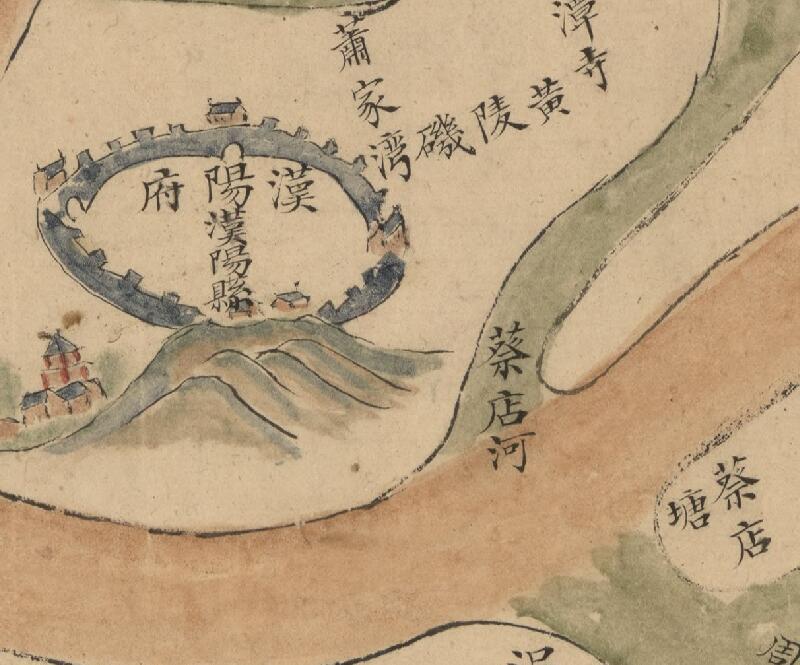 潭寺
黃陵磯
蕭家湾
漢陽府
漢陽縣
蔡店河
蔡店塘
周